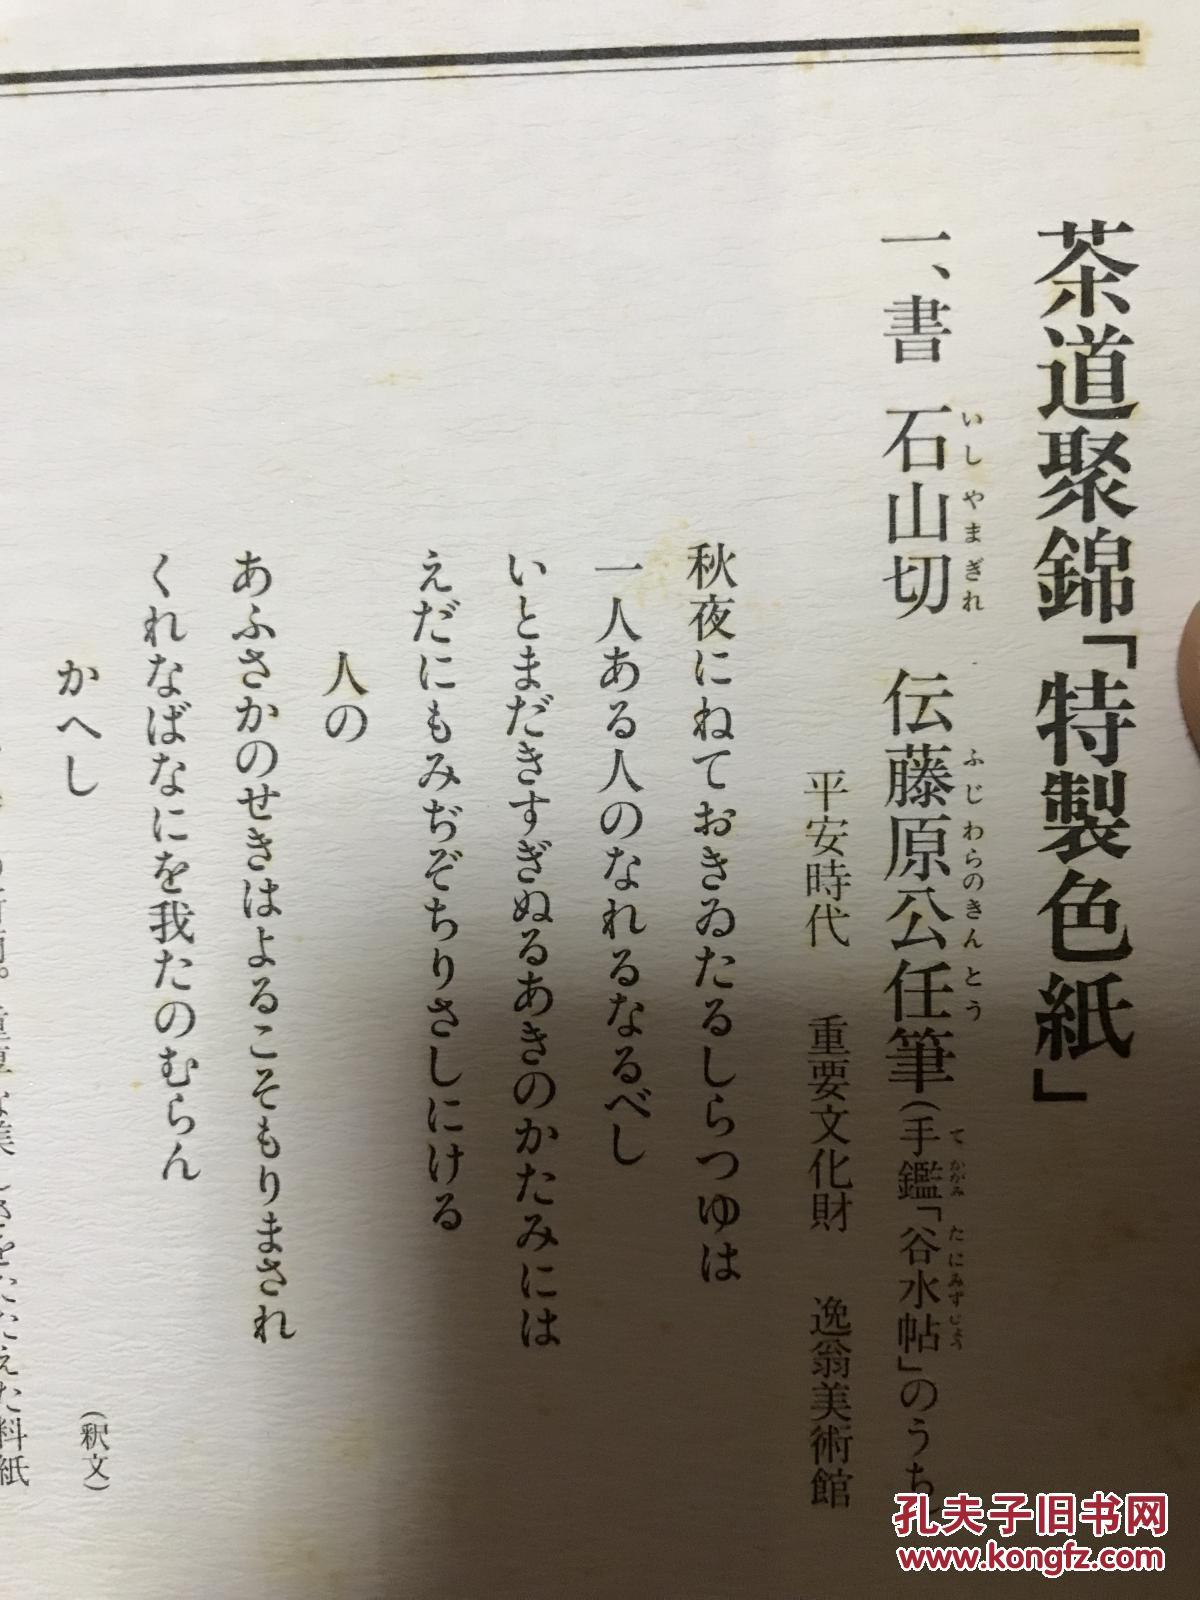 茶道聚錦「特製色紙」
一、書 石山切 伝藤原公任筆(手鑑「谷水帖」のうち
いしやまぎれ ふじわらのきんとう てかがみ たにみずじょう
平安時代 重要文化財 逸翁美術館
秋夜にねておきゐたるしらつゆは
一人ある人のなれるなるべし
いとまだきすぎぬるあきのかたみには
えだにもみぢぞちりさしにける
人の
あふさかのせきはよるこそもりまされ
くれなばなにを我たのむらん
かへし
(釈文)
をたたえた料紙
孔夫子旧书网
www.kongfz.com